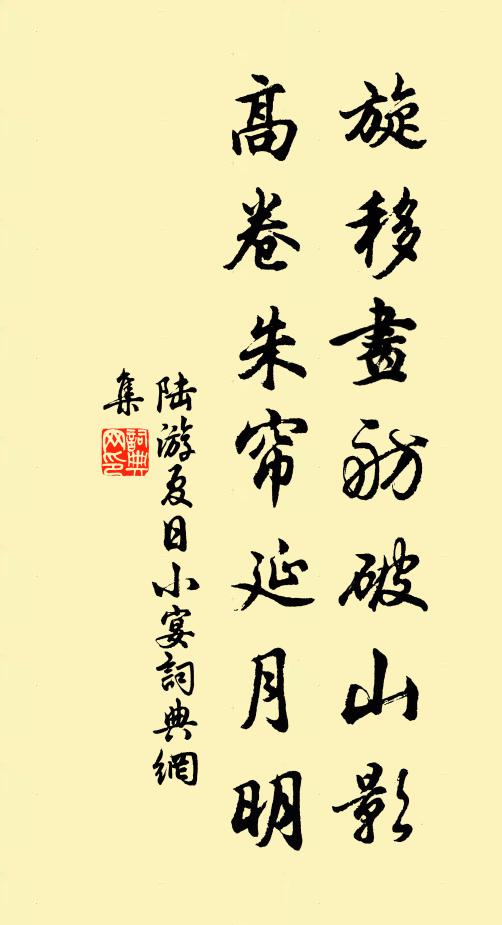 旋移畫舫破山影
高卷朱帘延月明
陆游夏日小宴詞典網
集
詞典网印